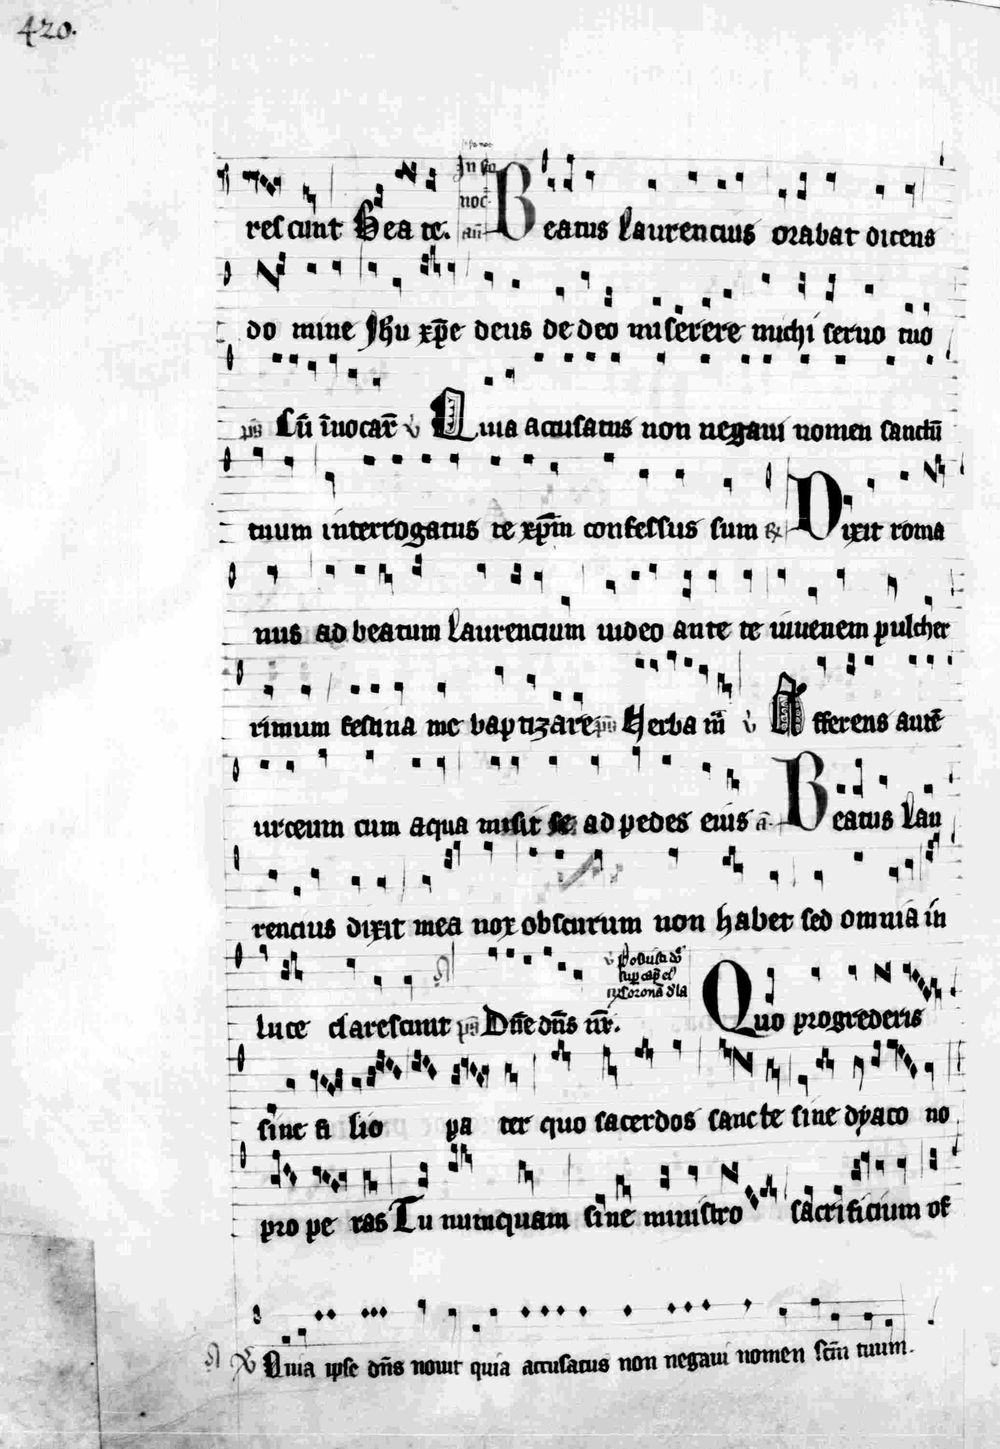 420.
rescunt Beate. In scdo noct. an̄ Beatus laurencius orabat dicens
do mine Jhu xp̄e deus de deo miserere michi seruo tuo
ps̄ Cū īuocar̄ v Quia accusatus non negaui nomen sanctū
tuum interrogatus te xp̄m confessus sum ā Dixit roma
nus ad beatum laurencium uideo ante te iuuenem pulcher
rimum festina me baptizare ps̄ Uerba m̄ v Afferens autē
urceum cum aqua misit se ad pedes eius ā Beatus lau
rencius dixit mea nox obscurum non habet sed omnia in
luce clarescunt ps̄ Dn̄e dn̄s nr̄. v Posuisti dn̄e
sup cap eī
Corona d la Quo progrederis
sine fi lio pa ter quo sacerdos sancte sine dyaco no
pro pe ras Tu numquam sine ministro sacrificium of
v Quia ipse dn̄s nouit quia accusatus non negaui nomen scm̄ tuum.